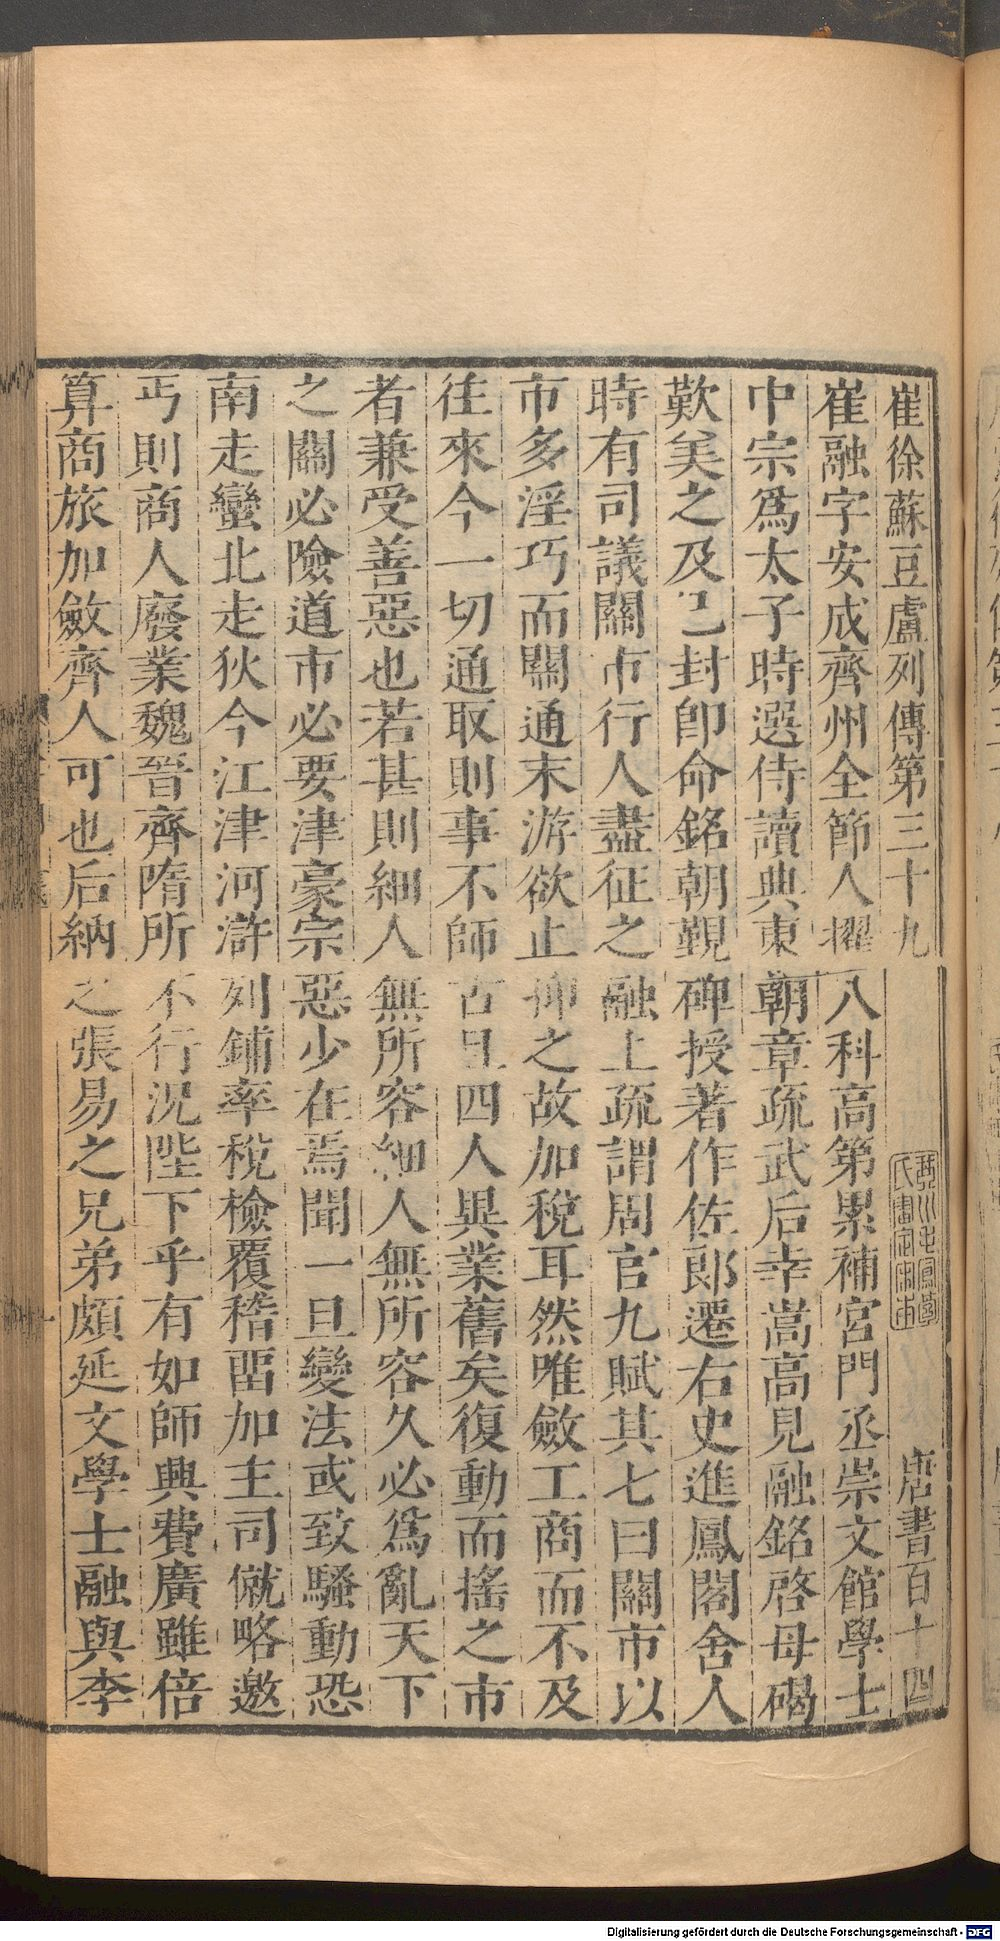 崔徐蘇豆盧列傳第三十九
琴川毛鳳苞
氏審定宋本
唐書百十四
崔融字安成齊州全節人擢八科高第累補宮門丞崇文館學士
中宗爲太子時選侍讀典東朝章疏武后幸嵩高見融銘啓母碣
歎美之及已封卽命銘朝覲碑授著作佐郎遷右史進鳳閣舍人
時有司議關市行人盡征之融上疏謂周官九賦其七曰關市以
市多淫巧而關通末游欲止抑之故加稅耳然唯斂工商而不及
往來今一切通取則事不師古且四人異業舊矣復動而搖之市
者兼受善惡也若甚則細人無所容細人無所容久必爲亂天下
之關必險道市必要津豪宗惡少在焉聞一旦變法或致騷動恐
南走蠻北走狄今江津河滸列鋪率稅檢覆稽畱加主司僦略邀
丐則商人廢業魏晉齊隋所不行況陛下乎有如師興費廣雖倍
算商旅加斂齊人可也后納之張易之兄弟頗延文學士融與李
Digitalisierung gefördert durch die Deutsche Forschungsgemeinschaft - DFG